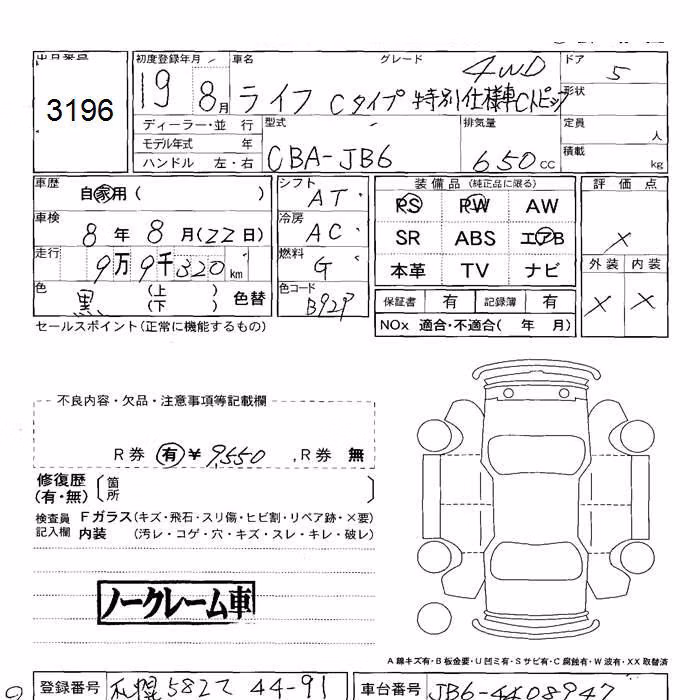 出品番号
3196
初度登録年月
19 8月
車名 グレード
ライフ Cタイプ 特別仕様車Cトピック
4WD
ドア 5
形状
定員 人
積載 kg
ディーラー・並行
モデル年式 年
ハンドル 左・右
型式
CBA-JB6
排気量
650cc
車歴
自家用( )
車検
8年8月(22日)
走行
9万9千320km
色
黒 (上 )
(下 ) 色替
シフト
AT
冷房
AC
燃料
G
色コード
B92P
装備品(純正品に限る)
PS PW AW
SR ABS エアB
本革 TV ナビ
保証書 有 記録簿 有
NOx 適合・不適合( 年 月)
評価点
×
外装 内装
× ×
セールスポイント(正常に機能するもの)
不良内容・欠品・注意事項等記載欄
R券 有 ¥9,550 .R券 無
修復歴
(有・無)
箇所
検査員
記入欄
Fガラス(キズ・飛石・スリ傷・ヒビ割・リペア跡・×要)
内装 (汚レ・コゲ・穴・キズ・スレ・キレ・破レ)
ノークレーム車
A 線キズ有・B 板金要・U 凹ミ有・S サビ有・C 腐蝕有・W 波有・XX 取替済
登録番号 札幌 582 44-91
車台番号 JB6-4408947